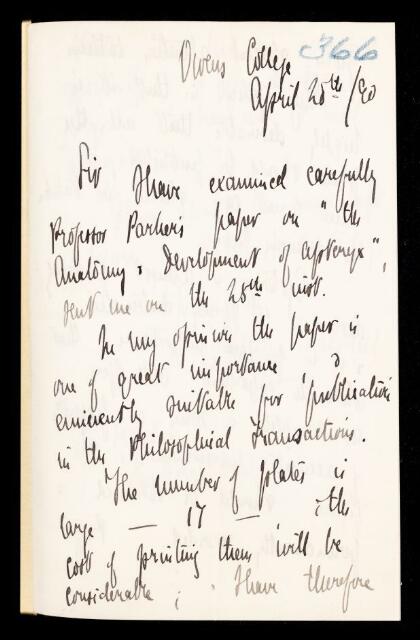 366
Owens College
April 25th/90
Sir I have examined carefully
Professor Parker's paper on "the
Anatomy & Development of Apteryx",
sent me on the 25th inst.
In my opinion the paper is
one of great importance &
eminently suitable for publication
in the Philosophical Transactions.
The number of plates is
large — 17 — & the
cost of printing them will be
considerable; I have therefore